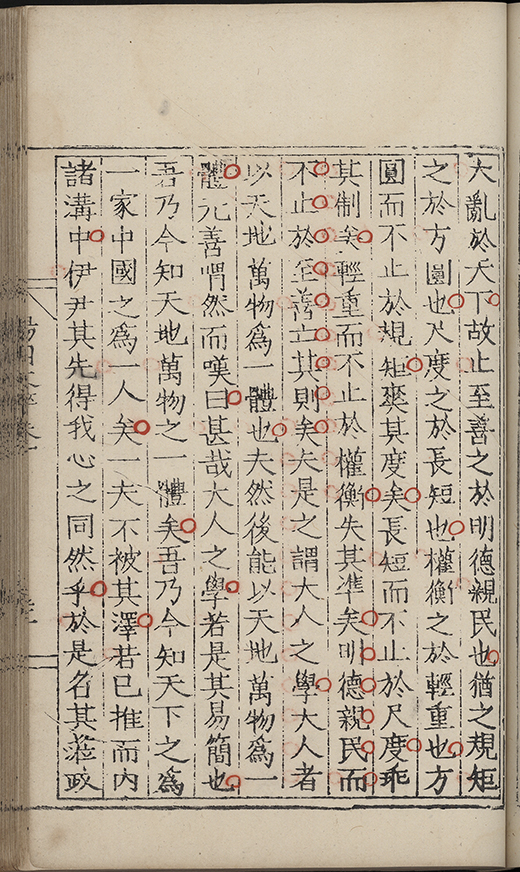 大亂於天下故止至善之於明德親民也猶之規矩
之於方圓也尺度之於長短也權衡之於輕重也方
圓而不止於規矩爽其度矣長短而不止於尺度乖
其制矣輕重而不止於權衡失其準矣明德親民而
不止於至善亡其則矣夫是之謂大人之學大人者
以天地萬物爲一體也夫然後能以天地萬物爲一
體元善喟然而嘆曰甚哉大人之學若是其易簡也
吾乃今知天地萬物之一體矣吾乃今知天下之爲
一家中國之爲一人矣一夫不被其澤若已推而內
諸溝中伊尹其先得我心之同然乎於是名其蒞政